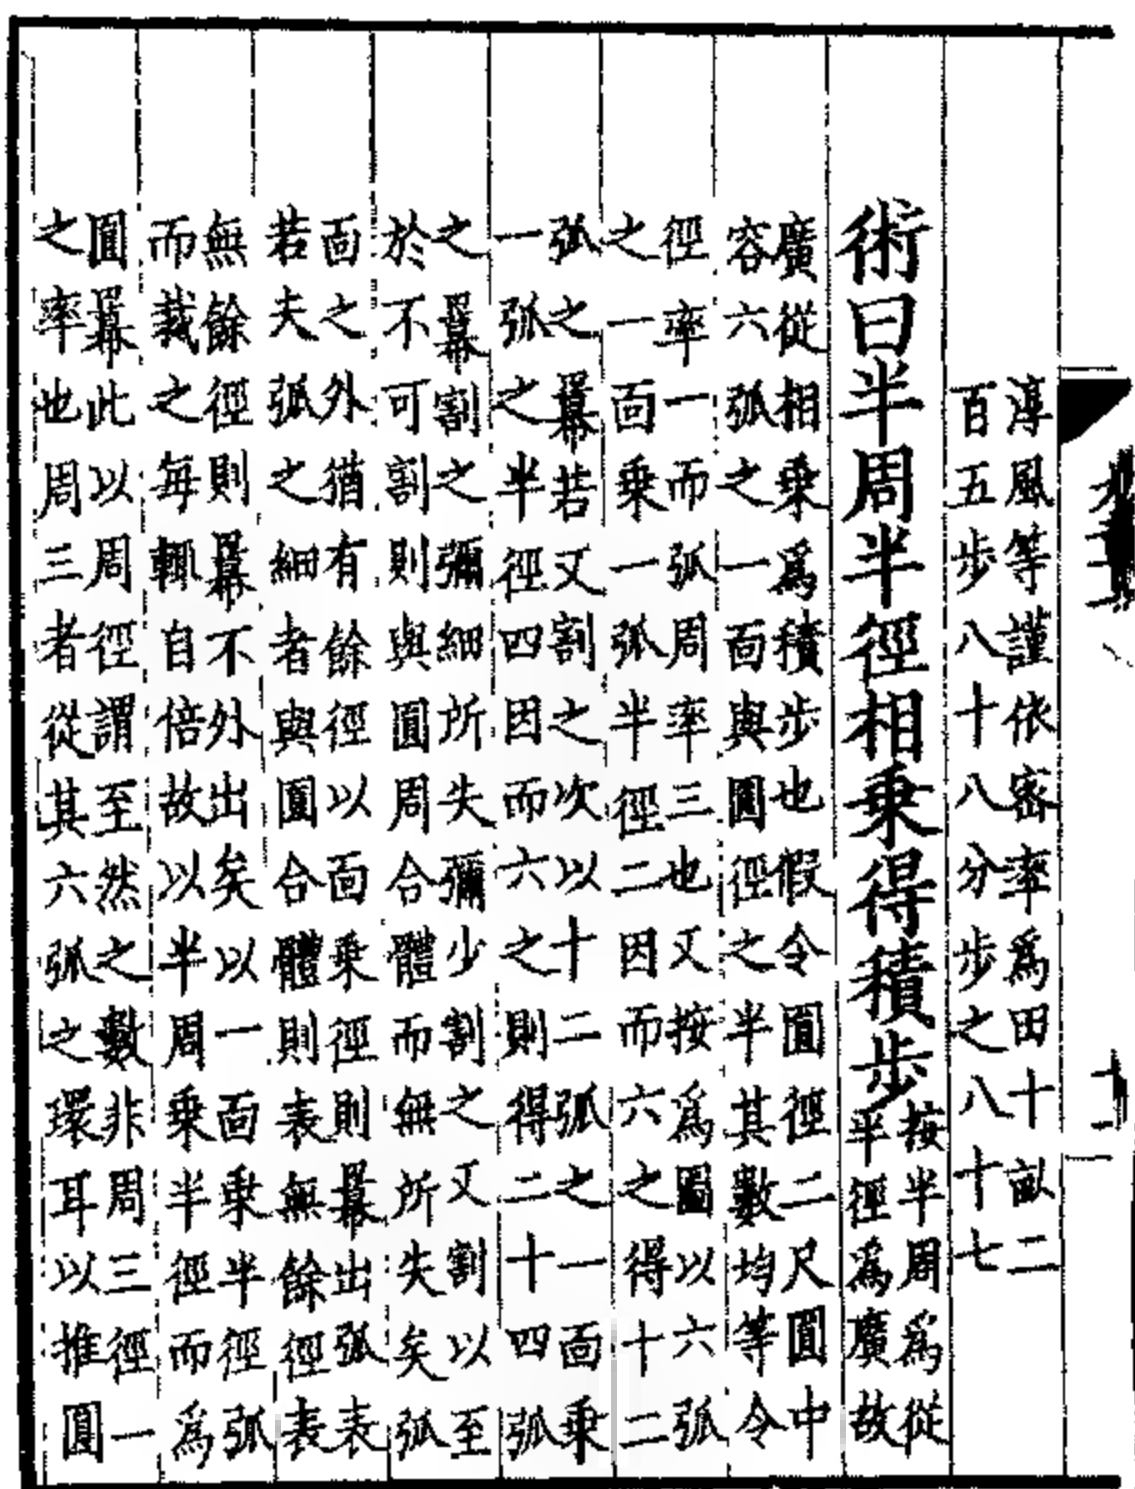 淳風等謹依密率爲田十畝二
百五步八十八分步之八十七
術曰半周半徑相乗得積步
按半周爲從
平徑爲廣故
廣從相乗爲積步也假令圓徑二尺圓中
容六弧之一面與圓徑之半其數均等令
徑率一而弧周率三也又按爲圖以六弧
之一面乗一弧半徑二因而六之得十二
弧之羃若又割之次以十二弧之一面乗
一弧之半徑四因而六之則得二十四弧
之羃割之彌細所失彌少割之又割以至
於不可割則與圓周合體而無所失矣弧
面之外猶有餘徑以面乗徑則羃出弧表
若夫弧之細者與圓合體則表無餘徑表
無餘徑則羃不外出矣以一面乗半徑弧
而裁之每輒自倍故以半周乗半徑而爲
圓羃此以周徑謂至然之數非周三徑一
之率也周三者從其六弧之環耳以推圓